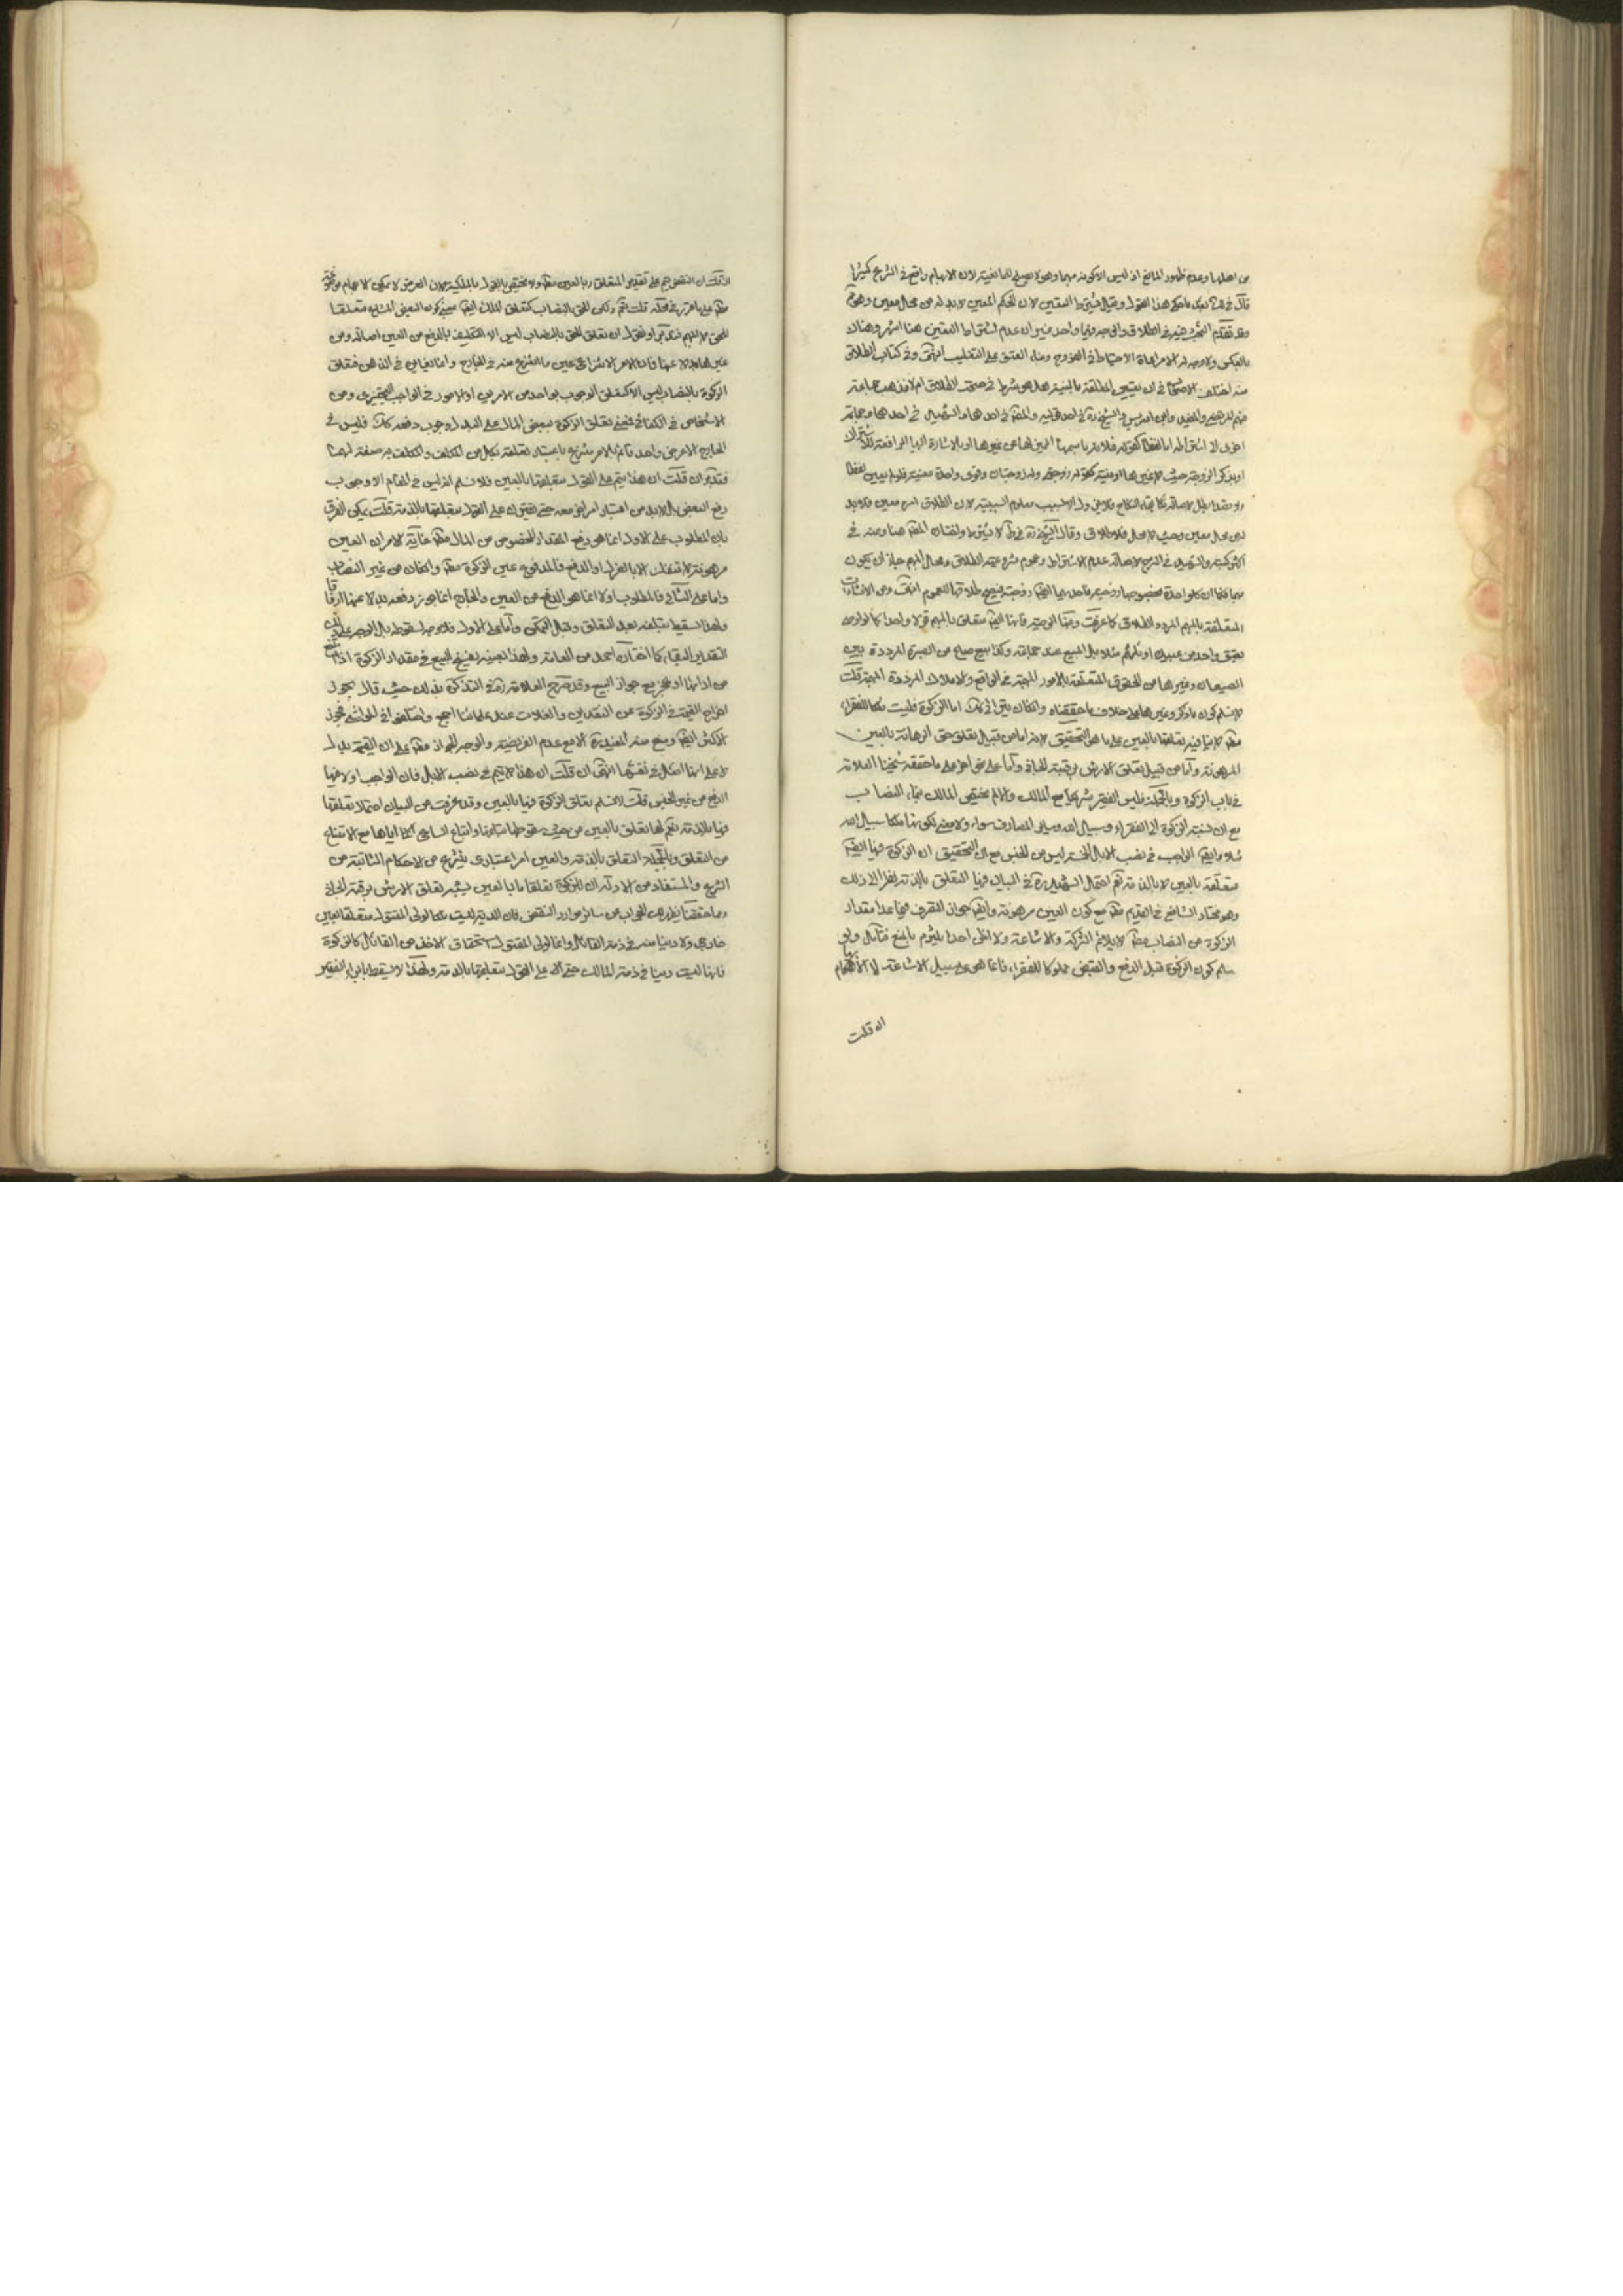 من اهلها وعدم ظهور المانع اذ ليس الا كونه مبهما وهو لا يصلح للمانعية لان الابهام واقع في الشرع كثيرا
قال في بعد ما حكى هذا القول وقيل يشترط التعيين لان الحكم المعين لا بد له من محل معين
وقد تقدم البحث فيه في الطلاق والوجه فيهما واحد غير ان عدم اشتراط التعيين هنا اشهر وهناك
بالعكس ولا وجه له الا مراعاة الاحتياط في الفروج وبناء العتق على التغليب انتهى وفي كتاب الطلاق
منه اختلف الاصحاب في ان تعيين المطلقة بالنية هل هو شرط في صحة الطلاق ام لا فذهب جماعة
منهم المرتضى والمفيد وابن ادريس والشيخ في احد قوليه في احدهما والشهيد في احدهما وجماعة
اخرى الى اشتراطه اما لفظا كقوله فلانة باسمها المميز لها عن غيرها او بالاشارة اليها الرافعة للاشتراك
او بذكر الزوجة حيث لا غيرها او نية كقوله زوجتي وله زوجتان ونوى واحدة معينة فلو لم يعين لفظا
ولا بقصد بطل لاصالة بقاء النكاح فلا يزول الا بسبب معلوم السببية لان الطلاق امر معين فلا بد
له من محل معين وحيث لا محل فلا طلاق وقال الشيخ في ط لا يشترط واختاره هنا ومنه في
اكثر كتبه والشهيد في الشرح لاصالة عدم الاشتراط وعموم مشروعية الطلاق ومحل المبهم جاز ان يكون
كل واحدة بخصوصها زوجة فاحديهما زوجة فيصح طلاقها للعموم انتهى ومن الانشاءات
المتعلقة بالمبهم المردد الطلاق كما عرفت ومنها الوصية فانها تتعلق بالمبهم قولا واحدا كما لو اوصى
بعتق واحد من عبيده او بيع صاع من الصبرة المرددة بين
الصيعان وغيرها من الحقوق المتعلقة بالامور المبهمة في الواقع والاملاك المرددة المبهمة قلت
لا نسلم كون ما ذكر وغيرها على خلاف ما حققناه اما الزكوة فليست ملكا للفقراء
لا ينافيه تعلقها بالعين على ما هو التحقيق لانه اما من قبيل تعلق حق الرهانة بالعين
المرهونة واما من قبيل تعلق الارش برقبة الجاني واما على نحو اخر على ما حققه شيخنا العلامة
في باب الزكوة وبالجملة فليس الفقير شريكا مع المالك والا لم يختص المالك بنماء النصاب
مع ان نسبة الزكوة الى الفقراء وسبيل الله وساير المصارف سواء ولا معنى لكونها ملكا لسبيل الله
مثلا الواجب في نصب الابل الخمسة ليس من الجنس مع ان التحقيق ان الزكوة فيها
متعلقة بالعين لا بالذمة نعم احتمل الشهيد في البيان فيها التعلق بالذمة نظرا الى ذلك
وهو مختار الشافعي في القديم مع كون العين مرهونة جواز التصرف فيما عدا مقدار
الزكوة من النصاب لا يلائم الشركة والاشاعة ولا اظن احدا يلتزم بالمنع فتأمل ولو
سلم كون الزكوة قبل الدفع والقبض مملوكا للفقراء فانما هو على سبيل الاشاعة لا الابهام
ان قلت
ان قلت ان النقض يعم على تقدير التعلق بالعين ولا يختص بالقول بالملكية لان العرض لا يمكن
على ما قرر في محله قلت نعم ولكن الحق بالنصاب كتعلق الملك بمعنى كون البعض المشاع متعلقا
للحق لا المبهم فتدبر او نقول ان تعلق الحق بالنصاب ليس الا التكليف بالدفع من العين اصالة ومن
غيرها بدلا عنها فان الامر الانتزاعي عين ما انتزع منه في الخارج وانما تغايرا في الذهن فتعلق
الزكوة بالنصاب ليس الا كتعلق الوجوب بواحد من الامرين او الامور في الواجب التخييري ومن
الاشخاص في الكفائي فمعنى تعلق الزكوة ببعض المال على البدل وجوب دفعه كك فليس في
الخارج الا عرض واحد قائم بالامر ينتزع باعتبار تعلقه بكل من المكلف والمكلف به صفة لهما
فتدبر ان قلت ان هذا يتم على القول بتعلقها بالعين فلا نسلم اذ ليس في المقام الا وجوب
دفع البعض بل لا بد من اعتبار امر اخر معه حتى يفترق على القول بتعلقها بالذمة قلت يمكن الفرق
بان المطلوب على الاول انما هو دفع المقدار المخصوص من المال غاية الامر ان العين
مرهونة لا تنفك الا بالعزل او الدفع فالمدفوع عين الزكوة وان كان من غير النصاب
واما على الثاني فالمطلوب اولا انما هو الدفع من العين والخارج انما يجوز دفعه بدلا عنها ارفاقا
ولهذا تسقط بتلفه بعد التعلق وقبل التمكن واما على الاول فلا وجه لسقوطه بل الوجه على
التقدير البقاء كما اختاره احمد من العامة ولهذا بعينه يفسخ البيع في مقدار الزكوة اذا امتنع
من ادائها او عجز مع جواز البيع وقد صرح العلامة في التذكرة بذلك حيث قال يجوز
اخراج القيمة في الزكوة عن النقدين والغلات عند علمائنا اجمع واختلفوا في المواشي فجوز
الاكثر ومنع منه المفيد الا مع عدم الفريضة والوجه على ان القيمة بدل
لا على انها اصل في نفسها انتهى ان قلت ان هذا لا يتم في نصب الابل فان الواجب اولا فيها
الدفع من غير الجنس قلت لا نسلم تعلق الزكوة فيها بالعين وقد عرفت من البيان احتمال تعلقها
فيها بالذمة نعم لها تعلق بالعين من حيث سقوطها بتلفها واتباع الساعي اياها مع الامتناع
من التعلق وبالجملة التعلق بالذمة والعين امر اعتباري ينتزع من الاحكام الثابتة من
الشرع والمستفاد من الادلة ان للزكوة تعلقا ما بالعين يشبه تعلق الارش برقبة الجاني
ومما حققنا يظهر الجواب عن سائر موارد النقض فان الدية ليست ملكا لولي المقتول متعلقا بعين
خارجي ولا دينا منه في ذمة القاتل وانما لولي المقتول استحقاق الاخذ من القاتل كالزكوة
فانها ليست دينا في ذمة المالك حتى على القول بتعلقها بالذمة ولهذا لا يسقط بابراء الفقير